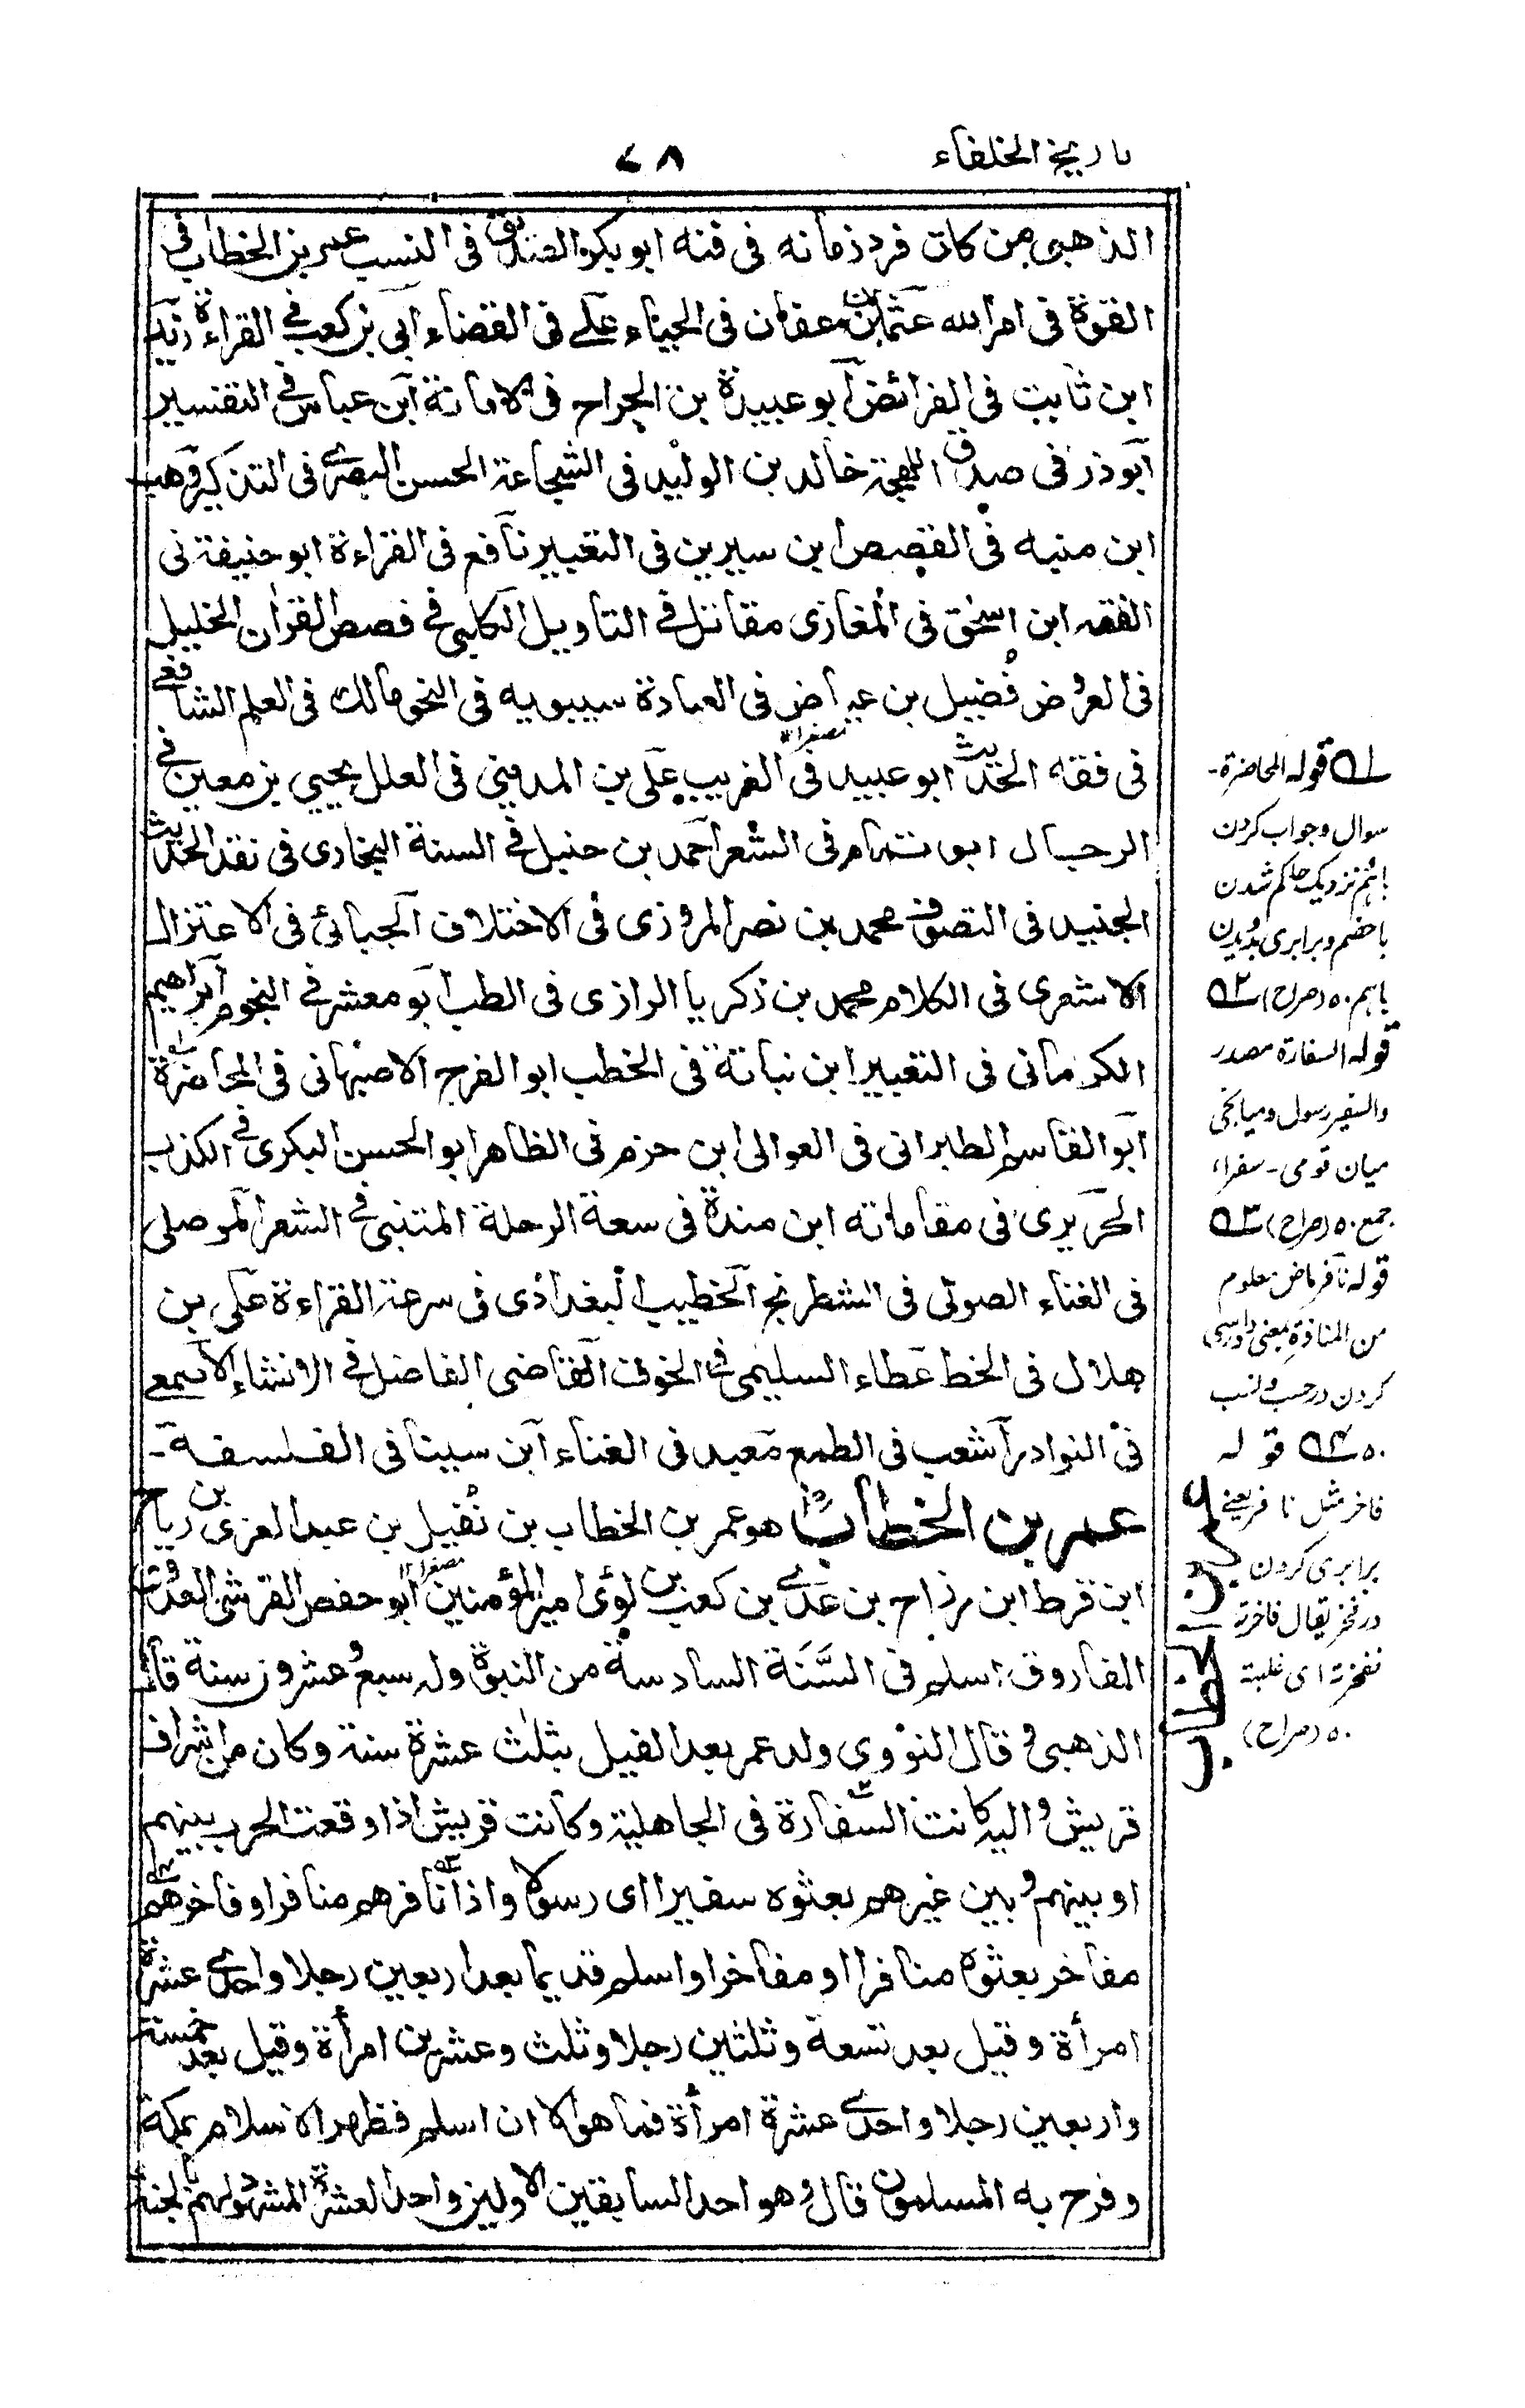 تاريخ الخلفاء
٧٨
الذهبى من كان فرد زمانه فى فنه ابو بكر الصديق فى النسب عمر بن الخطاب فى
القوة فى امر الله عثمان بن عفان فى الحياء على فى القضاء ابى بن كعب فى القراءة زيد
ابن ثابت فى الفرائض ابو عبيدة بن الجراح فى الامانة ابن عباس فى التفسير
ابو ذر فى صدق اللهجة خالد بن الوليد فى الشجاعة الحسن البصرى فى التذكير وهب
ابن منبه فى القصص ابن سيرين فى التعبير نافع فى القراءة ابو حنيفة فى
الفقه ابن اسحٰق فى المغازى مقاتل فى التاويل الكلبى فى قصص القراٰن الخليل
فى العروض فُضيل بن عياض فى العبادة سيبويه فى النحو مالك فى العلم الشافعى
فى فقه الحديث ابو عبيد فى الغريب على بن المدينى فى العلل يحيى بن معين فى
الرجال ابو تمام فى الشعر احمد بن حنبل فى السنة البخارى فى نقد الحديث
الجنيد فى التصوف محمد بن نصر المروزى فى الاختلاف الجبائى فى الاعتزال
الاشعرى فى الكلام محمد بن زكريا الرازى فى الطب ابو معشر فى النجوم ابراهيم
الكرمانى فى التعبير ابن نباتة فى الخطب ابو الفرج الاصبهانى فى المحاضرة
ابو القاسم الطبرانى فى العوالى ابن حزم فى الظاهر ابو الحسن البكرى فى الكذب
الحريرى فى مقاماته ابن مندة فى سعة الرحلة المتنبى فى الشعر الموصلى
فى الغناء الصولى فى الشطرنج الخطيب البغدادى فى سرعة القراءة على بن
هلال فى الخط عطاء السليمى فى الخوف القاضى الفاضل فى الانشاء الاصمعى
فى النوادر اشعب فى الطمع معبد فى الغناء ابن سينا فى الفلسفة -
عمر بن الخطاب رض هو عمر بن الخطاب بن نُفيل بن عبد العزى بن رياح
ابن قرط ابن رزاح بن عدى بن كعب بن لوُى امير المؤمنين ابو حفص القرشى العدوى
الفاروق اسلم فى السَّنَة السادسة من النبوة وله سبع وعشرون سنة قاله
الذهبى و قال النووى ولد عمر بعد الفيل بثلٰث عشرة سنة وكان من اشراف
قريش و اليه كانت السفارة فى الجاهلية وكانت قريش اذا وقعت الحرب بينهم
او بينهم و بين غيرهم بعثوه سفيرا اى رسولا واذا نافرهم منافر او فاخرهم
مفاخر بعثوه منافرا او مفاخرا واسلم قديما بعد اربعين رجلا واحدى عشرة
امرأة وقيل بعد تسعة وثلثين رجلا وثلث وعشرين امرأة وقيل بعد خمسة
واربعين رجلا واحدى عشرة امرأة فما هو الا ان اسلم فظهر الاسلام بمكة
وفرح به المسلمون قال و هو احد السابقين الاولين واحد العشرة المشهود لهم بالجنة
١ قوله المحاضرة-
سوال وجواب كردن
باهم نزديک حاكم شدن
با خصم و برابرى دويدن
باہم ٥ (صراح) ٢
قوله السفارة مصدر
والسفير رسول وميانجى
ميان قومى - سفراء
جمع ٥ (صراح) ٣
قوله نافر ماض معلوم
من المنافرة بمعنى داورى
كردن در حسب ونسب
٥ ٤ قوله
فاخر مثل نافر يعنى
برابرى كردن
در فخر يقال فاخرته
ففخرته اى غلبته
٥ (صراح)
عمر بن الخطاب